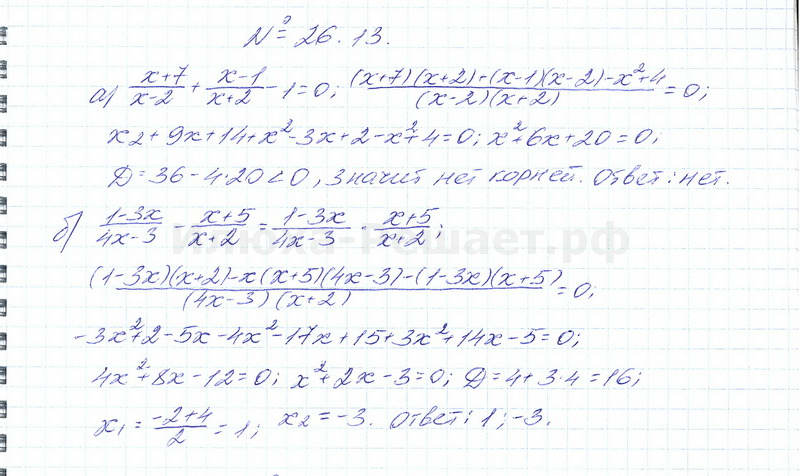 № 26.13.
а) (x+7)/(x-2) + (x-1)/(x+2) - 1 = 0; ((x+7)(x+2)+(x-1)(x-2)-x²+4)/((x-2)(x+2)) = 0;
x2 + 9x + 14 + x² - 3x + 2 - x² + 4 = 0; x² + 6x + 20 = 0;
D = 36 - 4·20 < 0, значит нет корней. Ответ: нет.
б) (1-3x)/(4x-3) - (x+5)/(x+2) = (1-3x)/(4x-3) · (x+5)/(x+2);
((1-3x)(x+2)-x(x+5)(4x-3)-(1-3x)(x+5))/((4x-3)(x+2)) = 0;
-3x² + 2 - 5x - 4x² - 17x + 15 + 3x² + 14x - 5 = 0;
4x² + 8x - 12 = 0; x² + 2x - 3 = 0; D = 4 + 3·4 = 16;
x₁ = (-2+4)/2 = 1; x₂ = -3. Ответ: 1; -3.
Илюха-Решает.рф